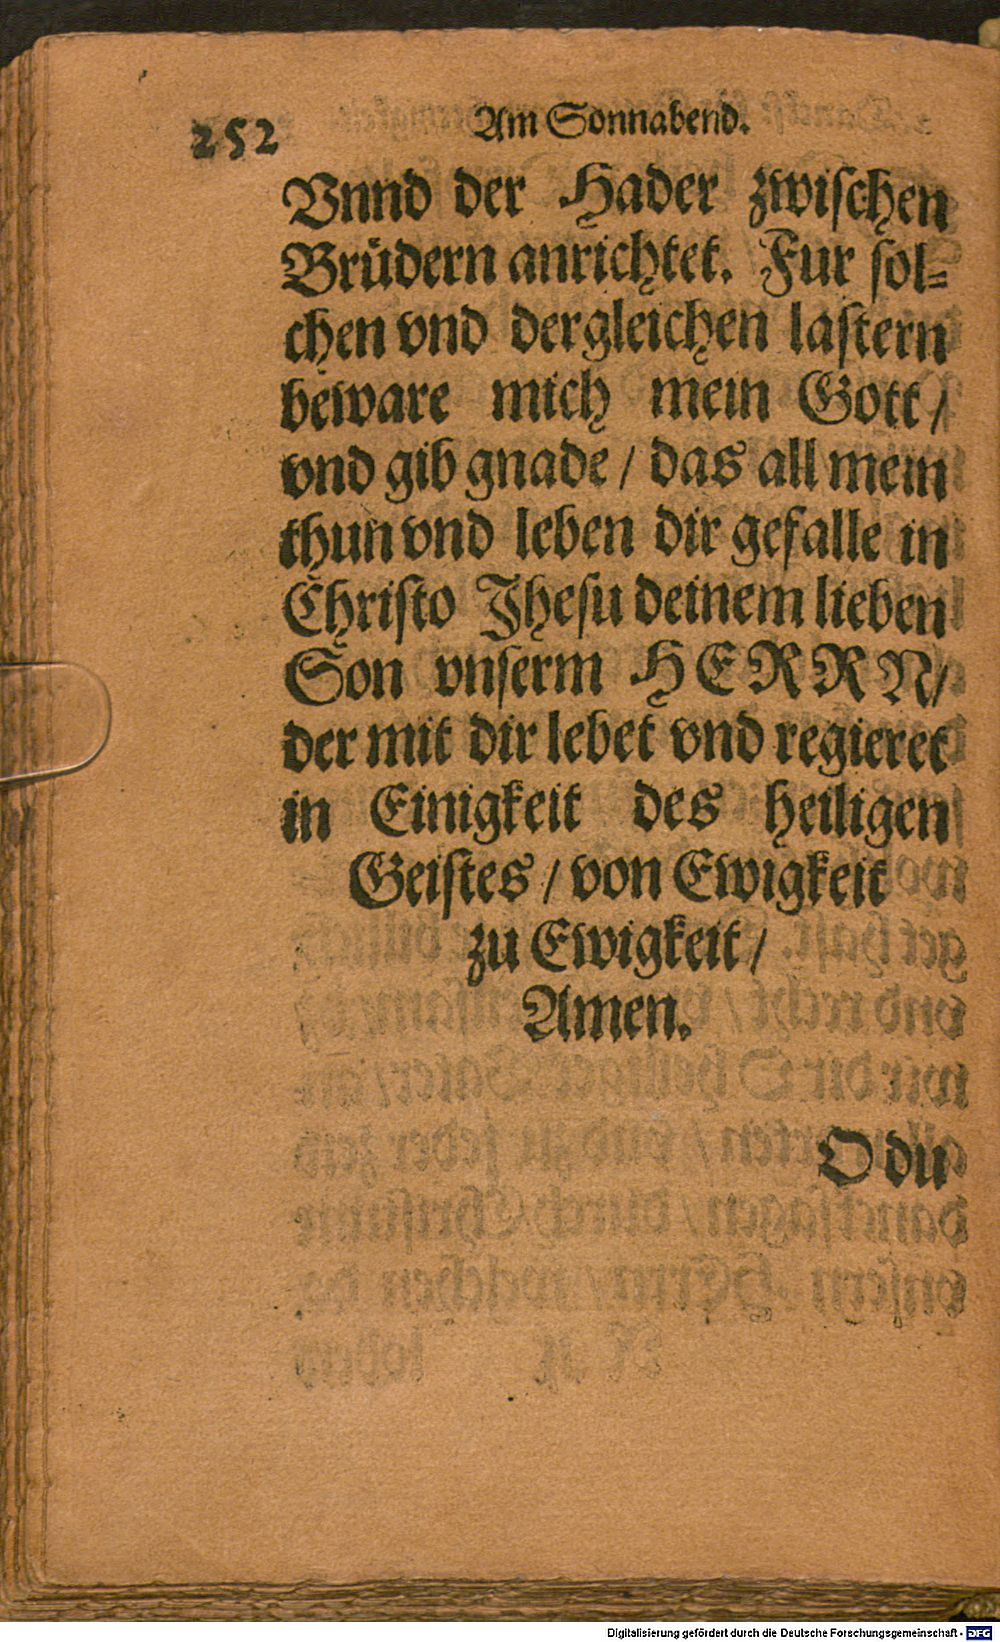 252 Am Sonnabend.
Vnnd der Hader zwiſchen
Brüdern anrichtet. Fur ſol⸗
chen vnd dergleichen laſtern
beware mich mein Gott /
vnd gib gnade / das all mein
thun vnd leben dir gefalle in
Chriſto Jheſu deinem lieben
Son vnſerm HERRN /
der mit dir lebet vnd regieret
in Einigkeit des heiligen
Geiſtes / von Ewigkeit
zu Ewigkeit /
Amen.
O du
Digitalisierung gefördert durch die Deutsche Forschungsgemeinschaft - DFG